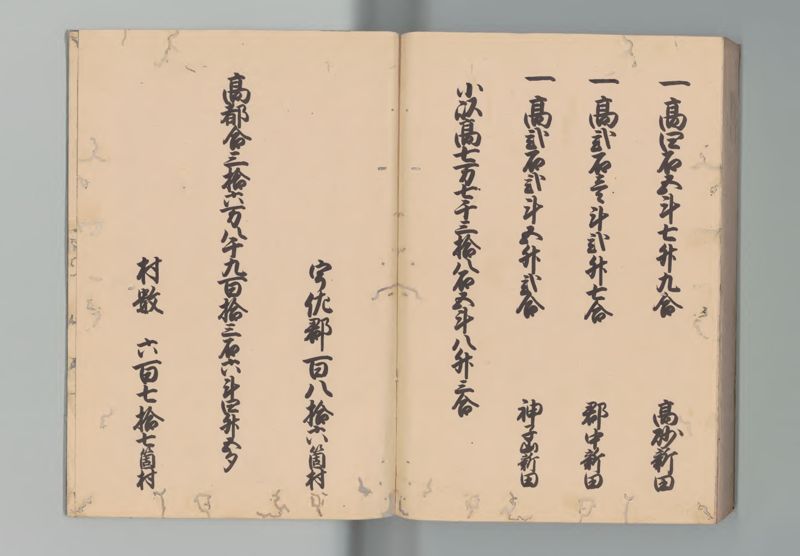 一高四石五斗七升九合 高砂新田
一高弐石壱斗弐升七合 郡中新田
一高弐石弐斗五升弐合 神子山新田
小以高七万七千三拾八石五斗八升三合
宇佐郡百八拾六箇村
高都合三拾六万八千九百拾三石六斗四升五夕
村数 六百七拾七箇村